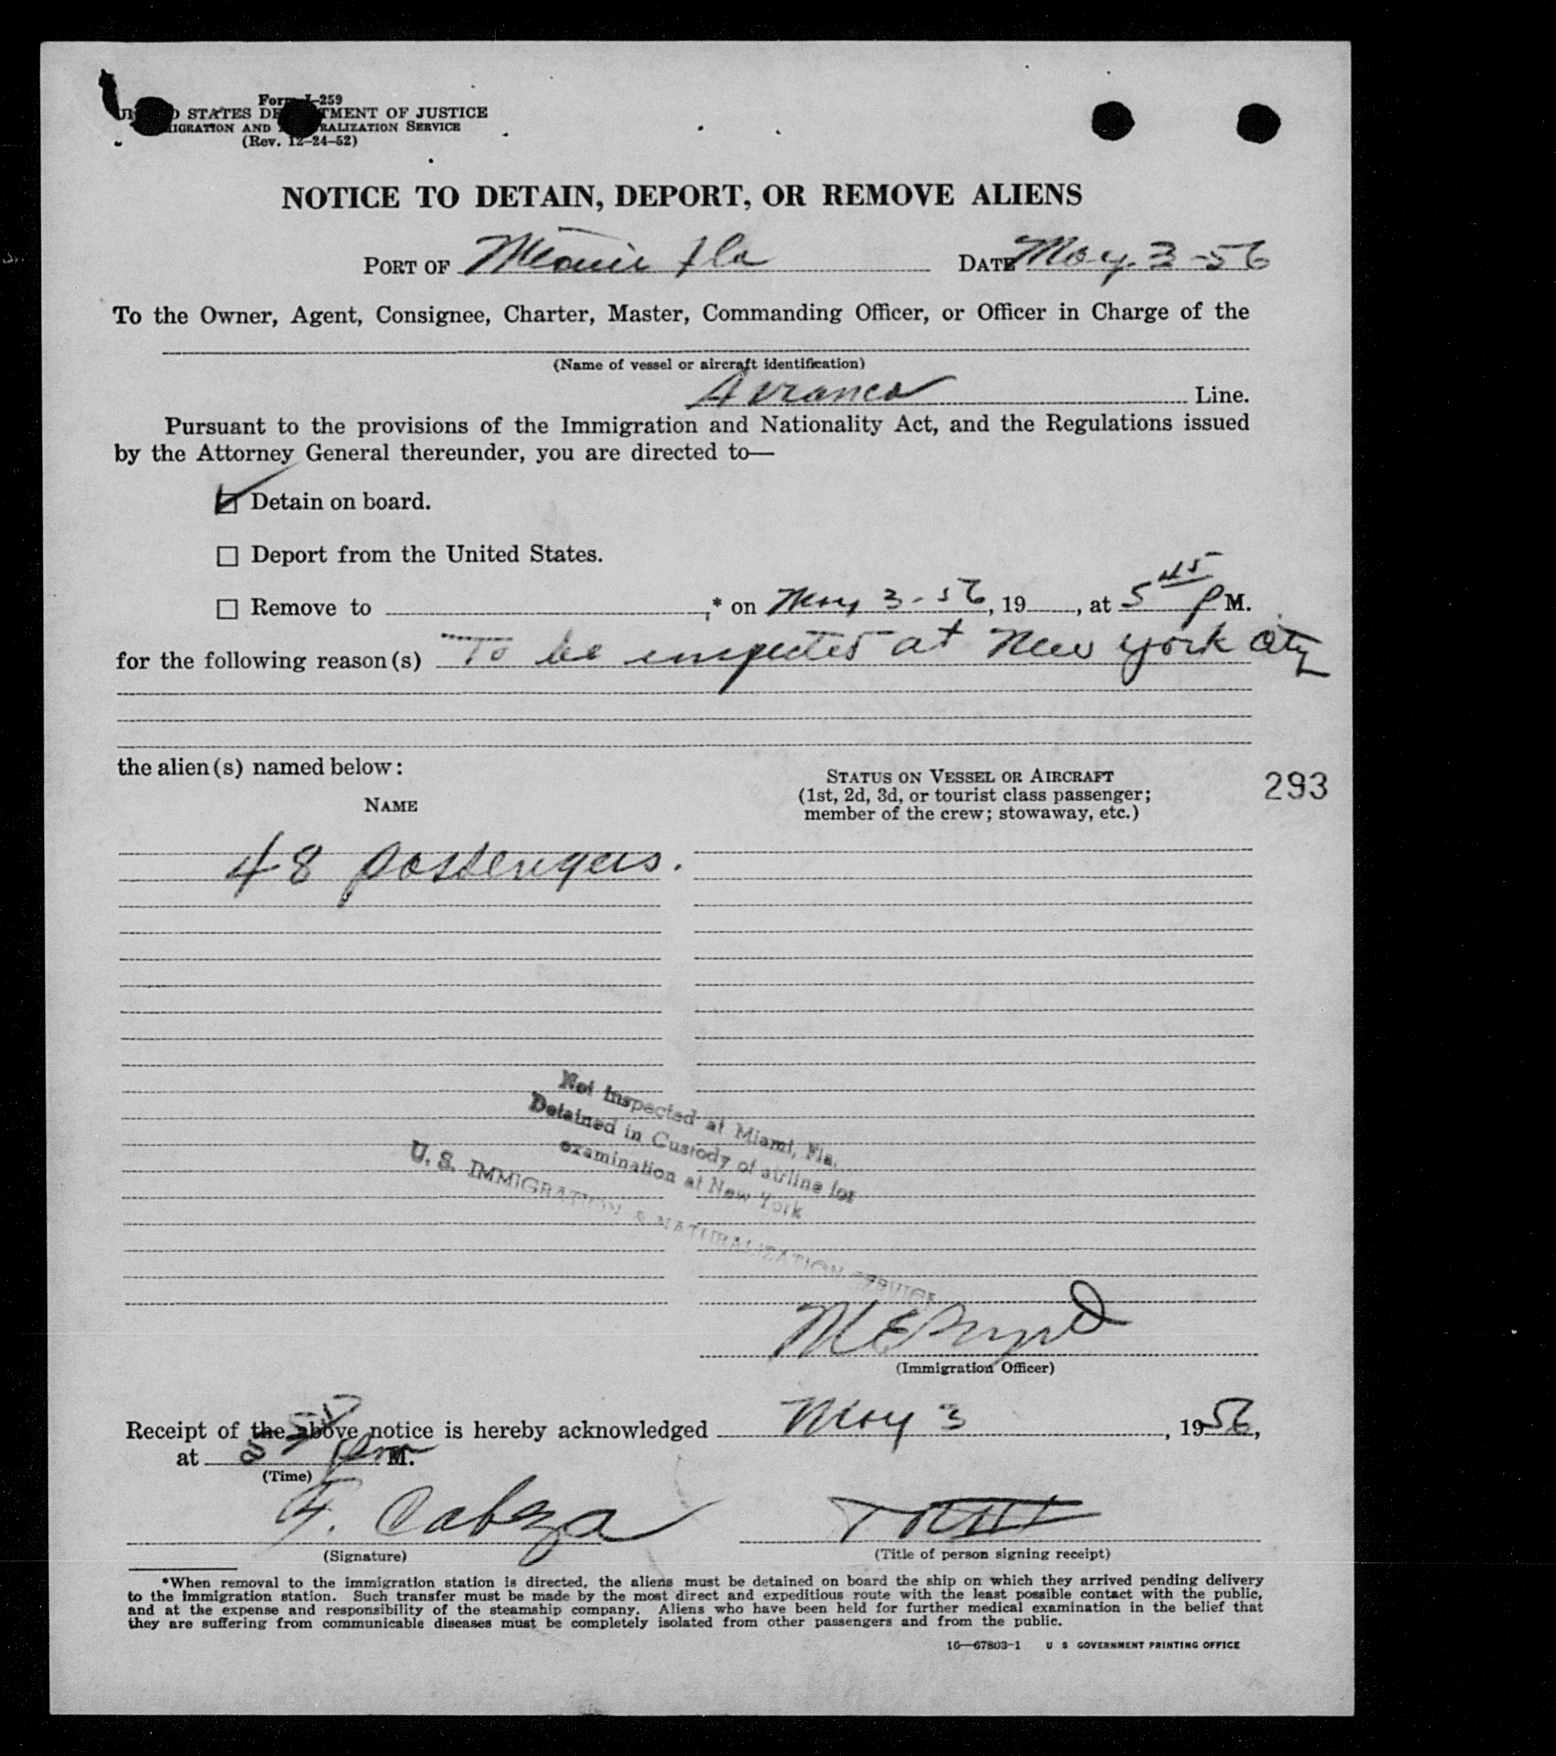 Form I-259
UNITED STATES DEPARTMENT OF JUSTICE
IMMIGRATION AND NATURALIZATION SERVICE
(Rev. 12-24-52)
NOTICE TO DETAIN, DEPORT, OR REMOVE ALIENS
PORT OF Miami Fla DATE May. 3-56
To the Owner, Agent, Consignee, Charter, Master, Commanding Officer, or Officer in Charge of the
(Name of vessel or aircraft identification)
Avianca Line.
Pursuant to the provisions of the Immigration and Nationality Act, and the Regulations issued
by the Attorney General thereunder, you are directed to—
Detain on board.
Deport from the United States.
Remove to ,* on May 3-56, 19 , at 5 45 P M.
for the following reason(s) To be inspected at New York City
the alien(s) named below:
NAME
STATUS ON VESSEL OR AIRCRAFT
(1st, 2d, 3d, or tourist class passenger;
member of the crew; stowaway, etc.)
293
48 passengers.
Not Inspected at Miami, Fla.
Detained in Custody of airline for
examination at New York
U. S. IMMIGRATION & NATURALIZATION SERVICE
M E Byrd
(Immigration Officer)
Receipt of the above notice is hereby acknowledged May 3, 1956,
at pm M.
(Time)
F. Cabeza
(Signature)
(Title of person signing receipt)
*When removal to the immigration station is directed, the aliens must be detained on board the ship on which they arrived pending delivery
to the immigration station. Such transfer must be made by the most direct and expeditious route with the least possible contact with the public,
and at the expense and responsibility of the steamship company. Aliens who have been held for further medical examination in the belief that
they are suffering from communicable diseases must be completely isolated from other passengers and from the public.
16—67803-1 U S GOVERNMENT PRINTING OFFICE